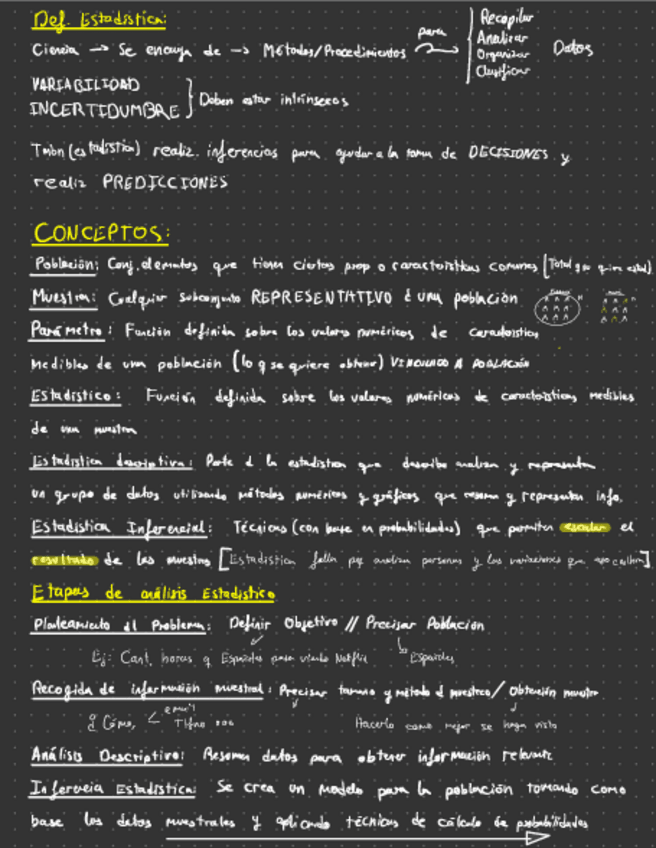 Def. Estadística:
Ciencia → Se encarga de → Métodos/Procedimientos para Recopilar
Analizar
Organizar
Clasificar
Datos
VARIABILIDAD
INCERTIDUMBRE } Deben estar intrínsecos
Tmbn (estadística) realiz. inferencias para ayudar a la toma de DECISIONES y
realiz PREDICCIONES
CONCEPTOS:
Población: Conj. elementos que tienen ciertas prop o características comunes [Total
Muestra: Cualquier subconjunto REPRESENTATIVO d una población
Parámetro: Función definida sobre los valores numéricos de características
Medibles de una población (lo q se quiere obtener) VINCULADO A POBLACIÓN
Estadístico: Función definida sobre los valores numéricos de características medibles
de una muestra
Estadística descriptiva: Parte d la estadística que describe analiza y representa
un grupo de datos utilizando métodos numéricos y gráficos que resumen y representan info.
Estadística Inferencial: Técnicas (con base en probabilidades) que permiten escalar el
resultado de las muestras [Estadística falla pq analiza personas y las variaciones que
Etapas de análisis Estadístico
Planteamiento dl Problema: Definir Objetivo // Precisar Población
Ej: Cant. horas q Españoles pasan viendo Netflix Españoles
Recogida de información muestral: Precisar tamaño y método d muestreo / Obtención muestra
Cómo, email Tlfno Hacerlo como mejor se haya visto
Análisis Descriptivo: Resumen datos para obtener información relevante
Inferencia Estadística: Se crea un modelo para la población tomando como
base los datos muestrales y aplicando técnicas de cálculo de probabilidades